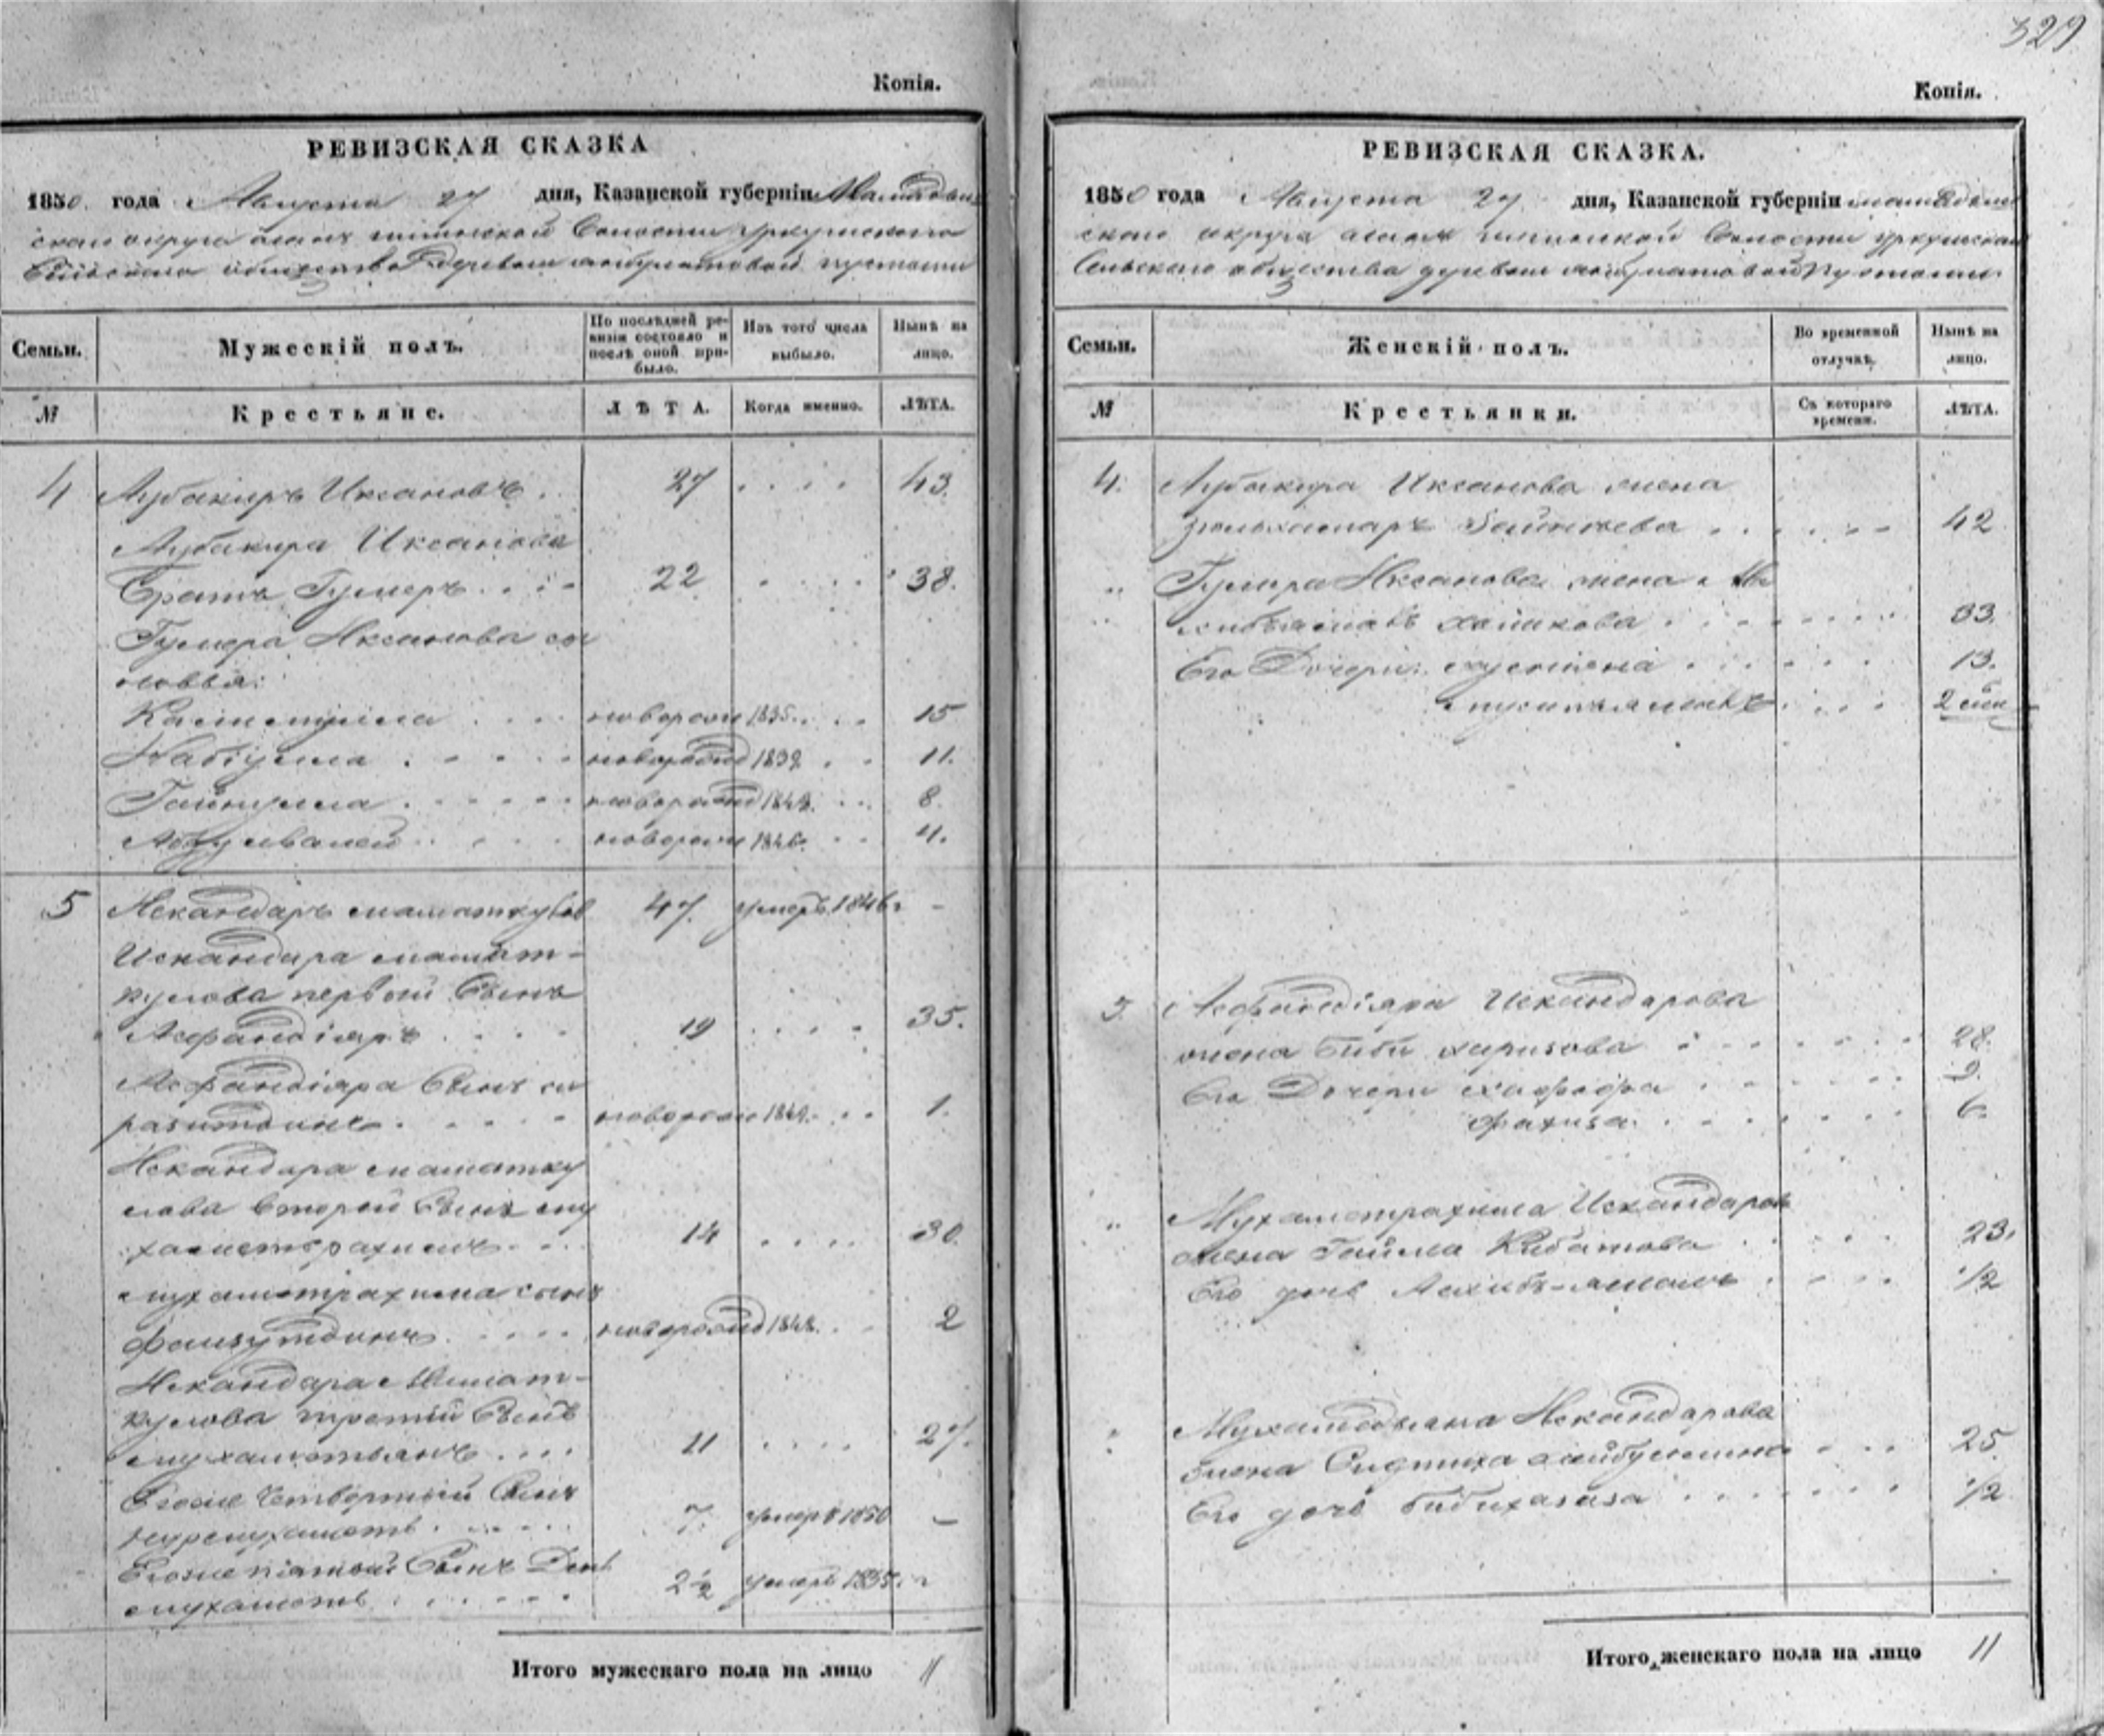 Копія.
РЕВИЗСКАЯ СКАЗКА
1850 года Августа 27 дня, Казанской губерніи Мамадыш
скаго округа волости Уркушскаго
Сельскаго общества деревни пустоши
Семьи. Мужескій полъ. По послѣдней ревизіи состояло и послѣ оной прибыло. Изъ того числа выбыло. Нынѣ на лицо.
№ Крестьяне. ЛѢТА. Когда именно. ЛѢТА.
4 Аубакиръ Иксановъ 27 43.
Аубакира Иксанова
братъ Гумеръ 22 38.
Гумера Иксанова сы
новья:
новорож 1835 15
Набіулла новорожд 1839 11.
Гайнулла новорожд 1842. 8.
Абдулвалей новорож 1846. 4.
5 Искандаръ Маматкулов 47. умеръ 1846 г -
Искандара Мамат-
кулова первой Сынъ
Асфандіяръ 19 35.
Асфандіяра Сынъ си
разитдинъ новорож 1849. 1.
Искандара Маматку
лова второй Сынъ Му
хаметрахимъ 14 30.
Мухаметрахима сынъ
Фаизутдинъ новорожд 1848. 2
Искандара Мамат-
кулова третій Сынъ
Мухаметьянъ 11 27.
Егоже четвертый Сынъ
Нурмухаметь 7. умеръ 1850 —
Егоже пятый Сынъ Дин
мухаметь 2½ умеръ 1835 г
Итого мужескаго пола на лицо 11
329
Копія.
РЕВИЗСКАЯ СКАЗКА.
1850 года Августа 27 дня, Казанской губерніи Мамадыш
скаго округа волости Уркушскаго
Сельскаго общества деревни Пустоши
Семьи. Женскій полъ. Во временной отлучкѣ. Нынѣ на лицо.
№ Крестьянки. Съ котораго времени. ЛѢТА.
4. Аубакира Иксанова жена
42
Гумера Иксанова жена Ма
33.
Его Дочери: 13.
2
5. Асфандіяра Искандарова
жена Биби Харисова 28.
Его Дочери Хафифа 9.
Фахиза 6.
„ Мухаметрахима Искандаров
жена Гайша 23.
Его дочь ½
„ Мухамедьяна Искандарова
жена Сидтика Хайбуллина 25.
Его дочь Бибихазиза ½
Итого женскаго пола на лицо 11